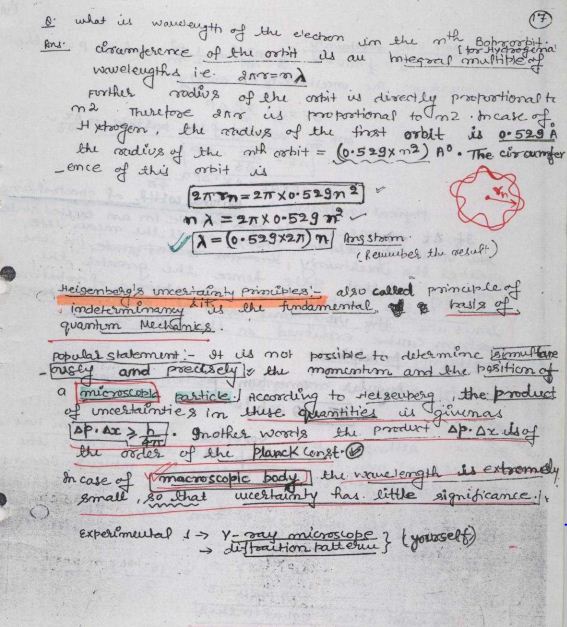 17
Q: what is wavelength of the electron in the nth Bohr orbit.
[for Hydrogen]
Ans: Circumference of the orbit is an integral multiple of
wavelengths i.e. 2πr = nλ
Further radius of the orbit is directly proportional to
n2. Therefore 2πr is proportional to n2. Incase of
Hydrogen, the radius of the first orbit is 0.529 Å
the radius of the nth orbit = (0.529 × n2) A°. The circumfer
-ence of this orbit is
2πrn = 2π × 0.529 n²
nλ = 2π × 0.529 n²
λ = (0.529 × 2π) n Angstrom.
(Remember the result)
rn
Heisenberg's uncertainty principles:- also called principle of
indeterminancy is the fundamental basis of
quantum Mechanics.
Popular statement:- It is not possible to determine simultane
-ously and precisely the momentum and the position of
a microscopic particle. According to Heisenberg, the product
of uncertainties in these quantities is given as
Δp. Δx ≥ h/4π. In other words the product Δp. Δx is of
the order of the planck const.
In case of macroscopic body the wavelength is extremely
small, so that uncertainty has little significance.
Experimental :→ γ-ray microscope } (yourself)
→ diffraction pattern